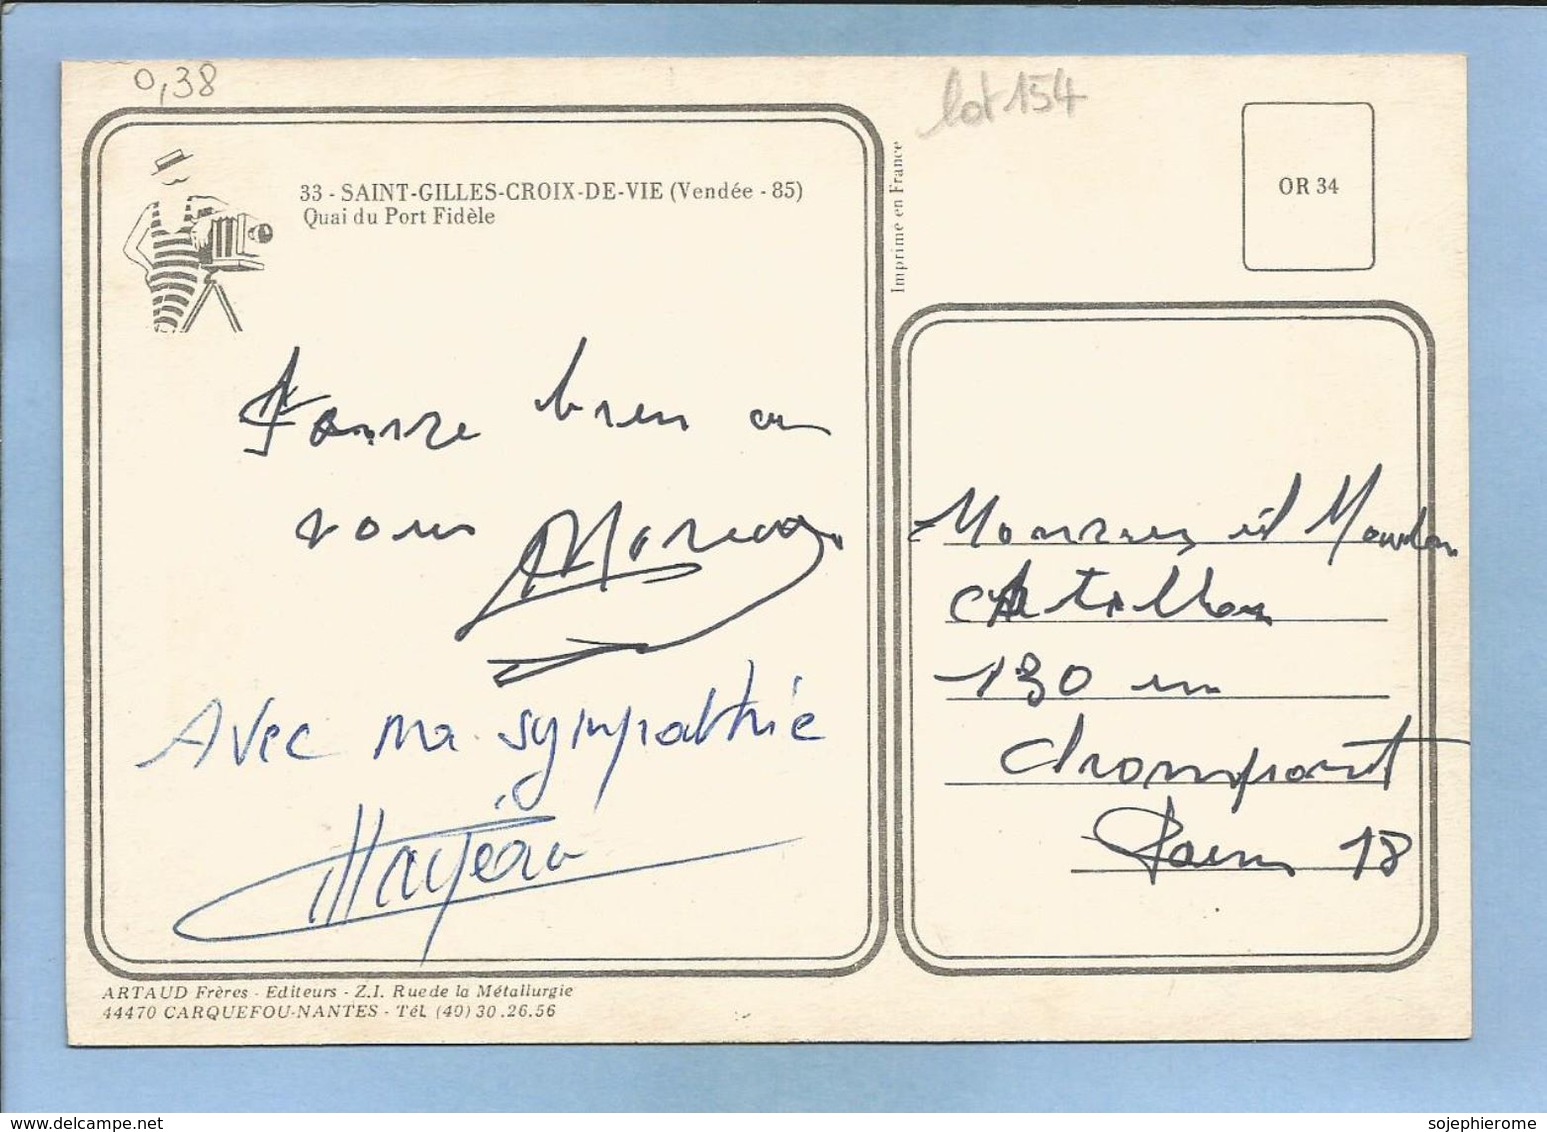 0,38
lot 154
33 - SAINT-GILLES-CROIX-DE-VIE (Vendée - 85)
Quai du Port Fidèle
Imprimé en France
OR 34
bien a
vous
Avec ma sympathie
Monsieur et
130 rue
Championnet
Paris 18
ARTAUD Frères - Editeurs - Z.I. Rue de la Métallurgie
44470 CARQUEFOU-NANTES - Tél. (40) 30.26.56
www.delcampe.net
sojephierome